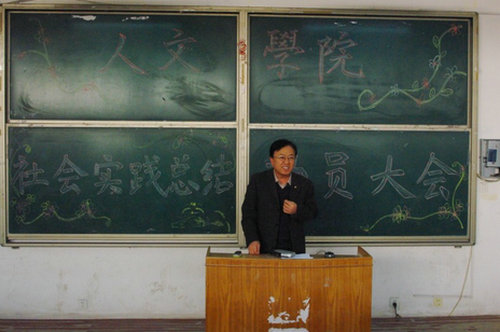 人文學院
社会实践总结 员大会